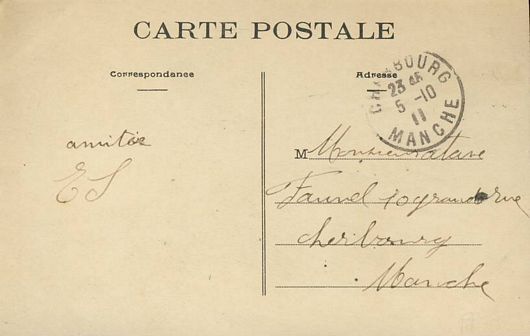 CARTE POSTALE
Correspondance
Adresse
CHERBOURG
23 45
5 -10
11
MANCHE
amitié
ES
M Monsieur
10 grande rue
cherbourg
Manche